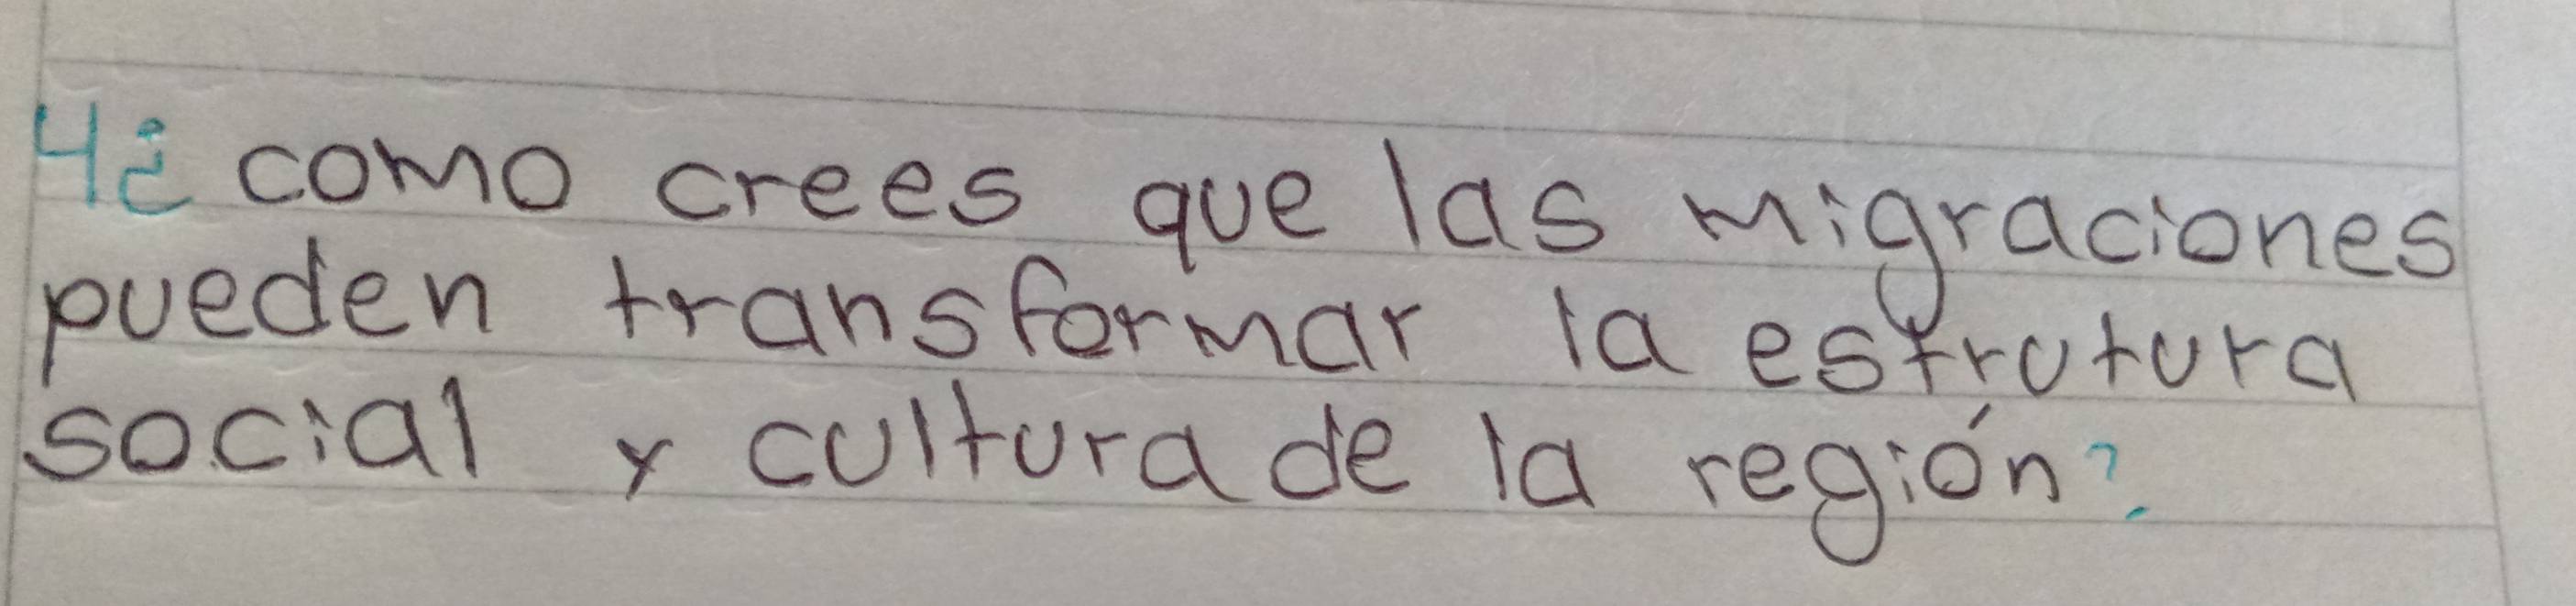 4¿ como crees que las migraciones
pueden transformar la estrutura
social y cultura de la región?